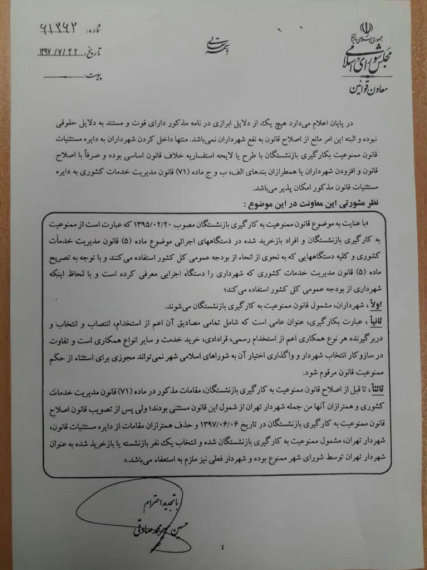 جمهوری اسلامی ایران
مجلس شورای اسلامی
معاون قوانین
شماره:
تاریخ: ۱۳۹۷/۷/۲۲
پیوست:
در پایان اعلام می‌دارد هیچ یک از دلایل ابرازی در نامه مذکور دارای قوت و مستند به دلایل حقوقی
نبوده و البته این امر مانع از اصلاح قانون به نفع شهرداران نمی‌باشد. منتها داخل کردن شهرداران به دایره مستثنیات
قانون ممنوعیت بکارگیری بازنشستگان با طرح یا لایحه استفساریه خلاف قانون اساسی بوده و صرفاً با اصلاح
قانون و افزودن شهرداران یا همطرازان بندهای الف، ب و ج ماده (۷۱) قانون مدیریت خدمات کشوری به دایره
مستثنیات قانون مذکور امکان پذیر می‌باشد.
نظر مشورتی این معاونت در این موضوع :
«با عنایت به موضوع قانون ممنوعیت به کارگیری بازنشستگان مصوب ۱۳۹۵/۰۲/۲۰ که عبارت است از ممنوعیت
به کارگیری بازنشستگان و افراد بازخرید شده در دستگاههای اجرائی موضوع ماده (۵) قانون مدیریت خدمات
کشوری و کلیه دستگاههایی که به نحوی از انحاء از بودجه عمومی کل کشور استفاده می‌کنند و با توجه به تصریح
ماده (۵) قانون مدیریت خدمات کشوری که شهرداری را دستگاه اجرایی معرفی کرده است و با لحاظ اینکه
شهرداری از بودجه عمومی کل کشور استفاده می‌کند؛
اولاً، شهرداران، مشمول قانون ممنوعیت به کارگیری بازنشستگان می‌شوند.
ثانیاً ، عبارت بکارگیری، عنوان عامی است که شامل تمامی مصادیق آن اعم از استخدام، انتصاب و انتخاب و
دربرگیرنده هر نوع همکاری اعم از استخدام رسمی، قراردادی، خرید خدمت و سایر انواع همکاری است و تفاوت
در سازوکار انتخاب شهردار و واگذاری اختیار آن به شوراهای اسلامی شهر نمی‌تواند مجوزی برای استثناء از حکم
ممنوعیت قانون مرقوم شود.
ثالثاً ، تا قبل از اصلاح قانون ممنوعیت به کارگیری بازنشستگان، مقامات مذکور در ماده (۷۱) قانون مدیریت خدمات
کشوری و همترازان آنها من جمله شهردار تهران از شمول این قانون مستثنی بودند؛ ولی پس از تصویب قانون اصلاح
قانون ممنوعیت به کارگیری بازنشستگان در تاریخ ۱۳۹۷/۰۶/۰۶ و حذف همترازان مقامات از دایره مستثنیات قانون،
شهردار تهران؛ مشمول ممنوعیت به کارگیری بازنشستگان شده و انتخاب یک نفر بازنشسته یا بازخرید شده به عنوان
شهردار تهران توسط شورای شهر ممنوع بوده و شهردار فعلی نیز ملزم به استعفاء می‌باشد.»
با تجدید احترام
۴